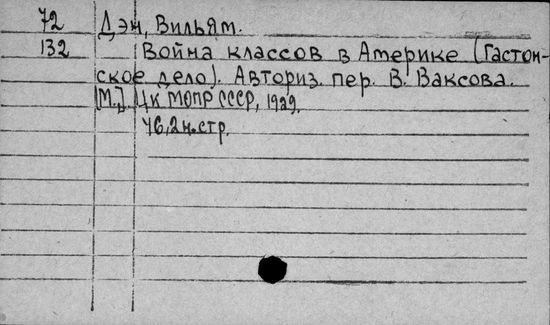 72 Дэн, Вильям.
132 Война классов в Америке (Гастон-
ское дело). Авториз. пер. В. Ваксова.
[М.], Цк МОПР СССР, 1929.
46, 2 н. стр.